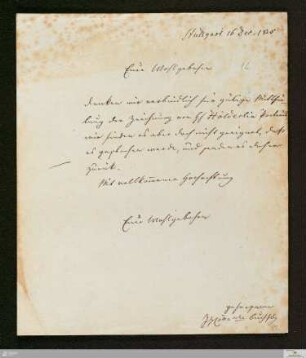 Stuttgart 16 Dec.
Euer Wohlgeboren
danken wir verbindlich für gütige Mittheilung
der Zeichnung von Hölderlin
wir finden es aber doch nicht geeignet, daß
es gegeben werde, und senden es daher
zurück.
Mit vollkommener Hochachtung
Euer Wohlgeboren
gehorsamer